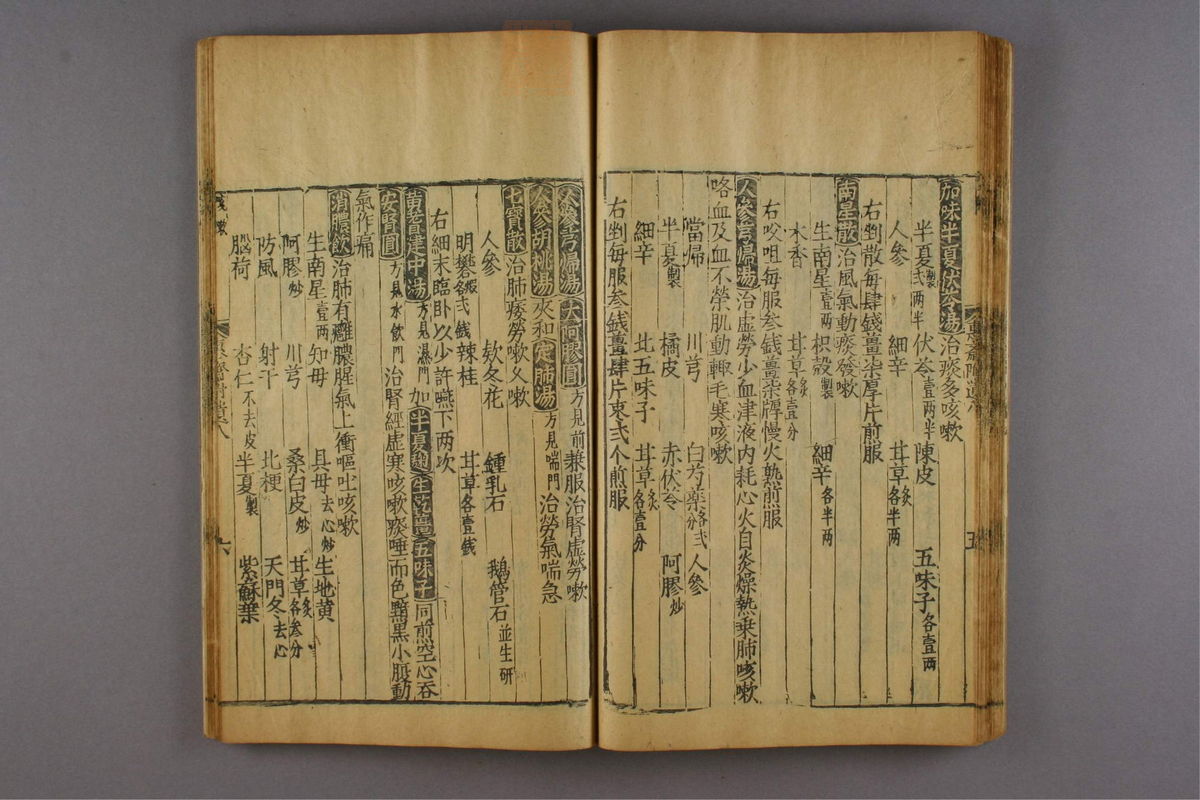 加味半夏茯苓湯治痰多咳嗽
半夏製弍两半 伏苓壹两半 陳皮 五味子各壹两
人參 細辛 甘草炙各半两
右剉散每肆錢薑柒厚片煎服
南星散治風氣動痰發嗽
生南星壹两 枳殼製 細辛各半两
木香 甘草各壹分
右㕮咀每服叁錢薑柒片慢火熟煎服
人參芎歸湯治虛勞少血津液内耗心火自炎燥熱乗肺咳嗽
咯血及血不榮肌動輙毛寒咳嗽
當歸 川芎 白芍藥各弍分 人參
半夏製 橘皮 赤伏苓 阿膠炒
細辛 北五味子 甘草炙各壹分
右剉每服叁錢薑肆片棗弍个煎服
五
人參芎歸湯 大阿膠圓方見前兼服治腎虛勞嗽
人參胡桃湯夾和定肺湯方見喘門治勞氣喘急
七寶散治肺痿勞嗽久嗽
人參 欵冬花 鍾乳石 鵝管石並生研
明礬煅各弍錢 辣桂 甘草各壹錢
右細末臨卧以少許嚥下两次
黄耆建中湯方見濕門加半夏麯生薑五味子同煎空心吞
安腎圓方見水飲門治腎經虛寒咳嗽痰唾面色黧黑小腹動
氣作痛
消膿飲治肺有癰膿腥氣上衝嘔吐咳嗽
生南星壹两 知母 貝母去心炒 生地黄
阿膠炒 川芎 桑白皮炒 甘草炙各叁分
防風 射干 北梗 天門冬去心
脳荷 杏仁不去皮 半夏製 紫蘇葉
六